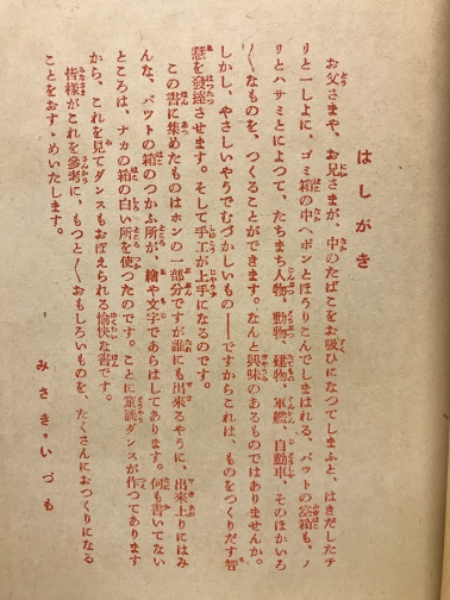 はしがき
お父さまや、お兄さまが、中のたばこをお吸ひになつてしまふと、はきだしたチ
リと一しよに、ゴミ箱の中へポンとほうりこんでしまはれる、バットの空箱も、ノ
リとハサミとによつて、たちまち人物、動物、建物、軍艦、自動車、そのほかいろ
〱なものを、つくることができます。なんと興味のあるものではありませんか。
しかし、やさしいやうでむづかしいもの――ですからこれは、ものをつくりだす智
慧を發達させます。そして手工が上手になるのです。
この書に集めたものはホンの一部分ですが誰にも出來るやうに、出來上りにはみ
んな、バットの箱のつかふ所が、繪や文字であらはしてあります。何も書いてない
ところは、ナカの箱の白い所を使つたのです。ことに童謠ダンスが作つてあります
から、これを見てダンスもおぼえられる愉快な書です。
皆樣がこれを參考に、もつと〱おもしろいものを、たくさんにおつくりになる
ことをおすゝめいたします。
みさき・いづも